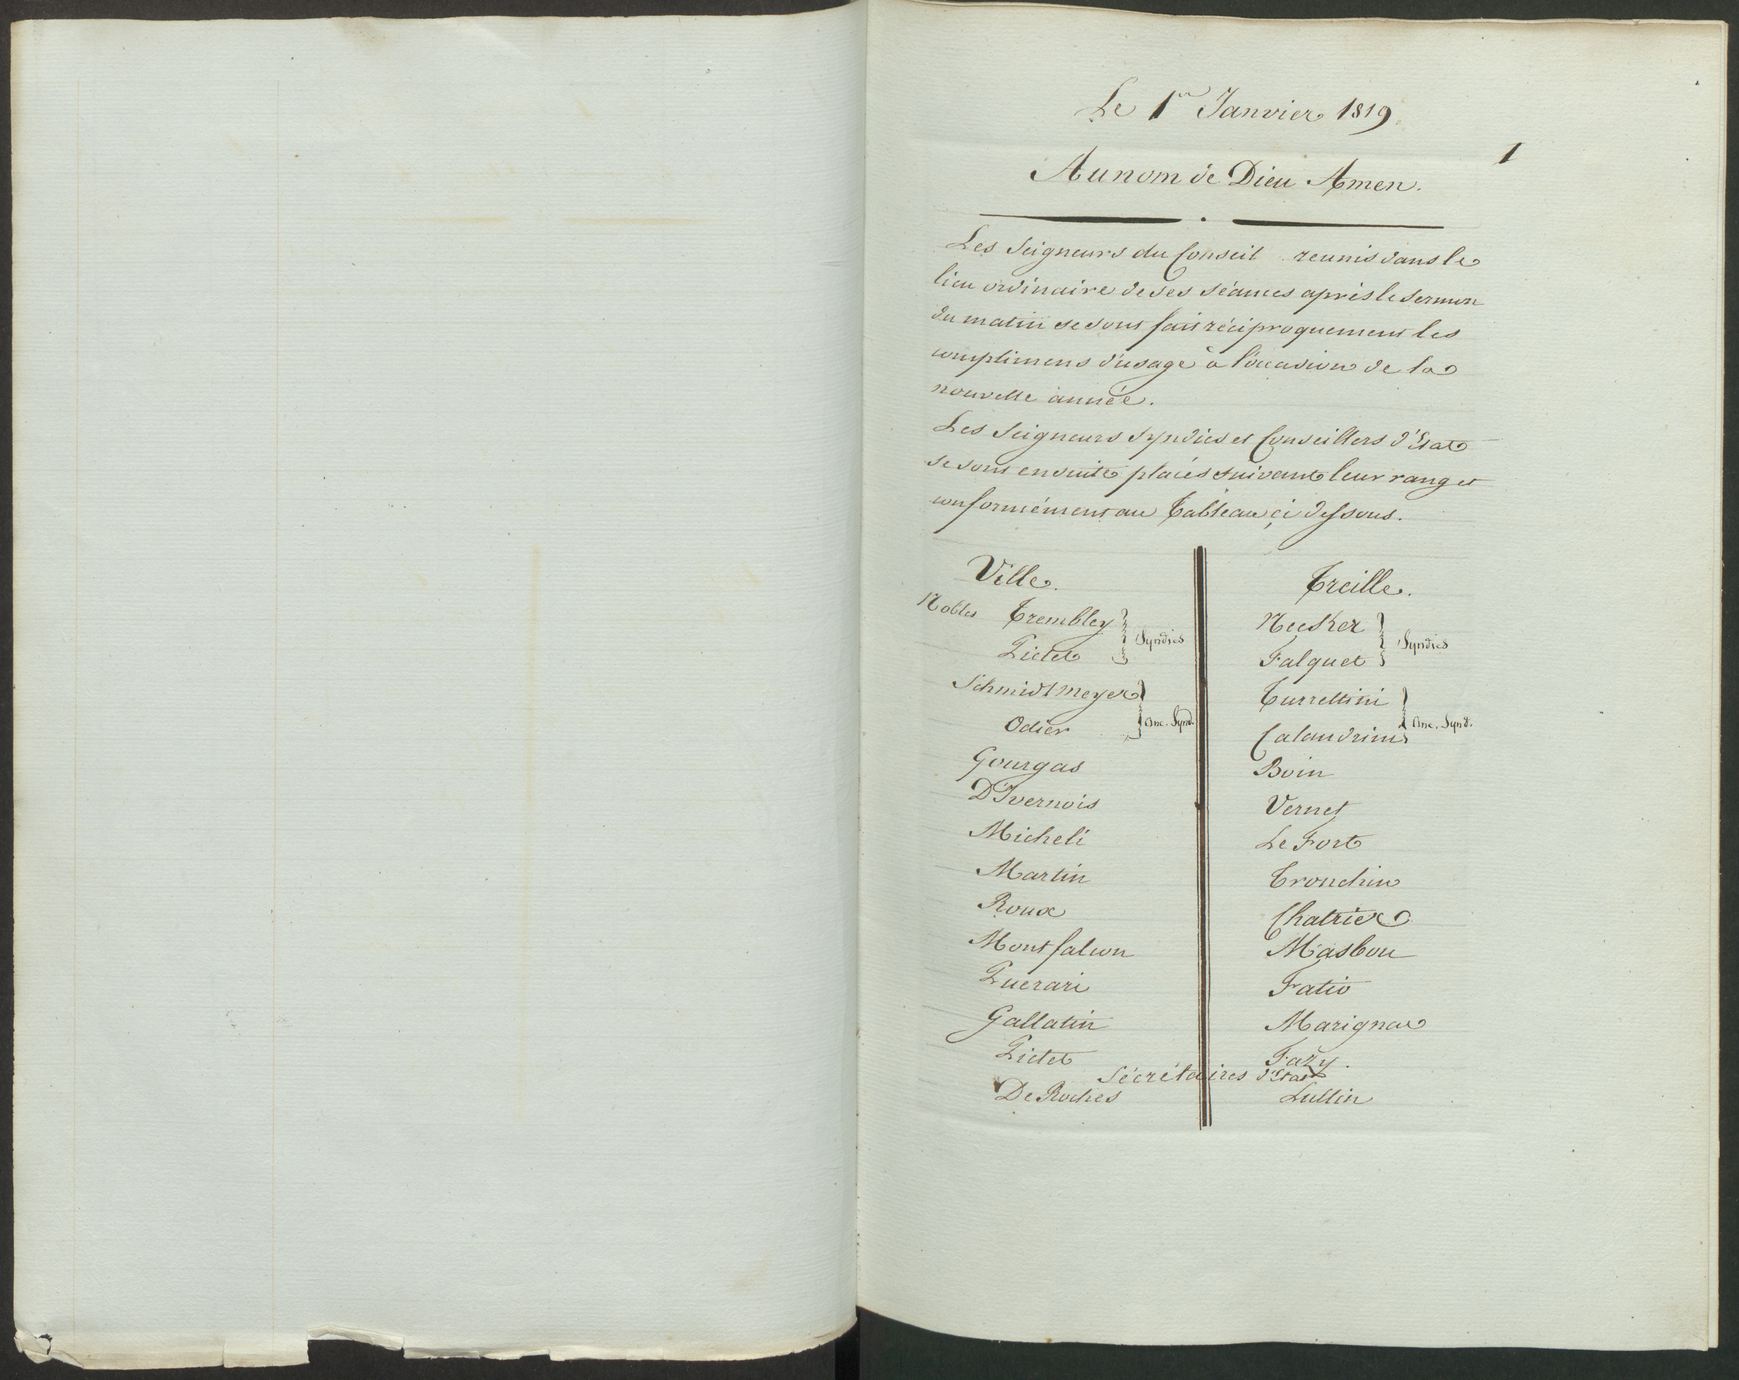 Le 1er Janvier 1819
1
Au nom de Dieu Amen.
Les Seigneurs du Conseil reunis dans le
lieu ordinaire de ses séances après le sermon
du matin se sont fait réciproquement les
complimens d'usage à l'occasion de la
nouvelle année.
Les Seigneurs Syndics et Conseillers d'Etat
se sont ensuite placés suivant leur rang et
conformément au Tableau ci dessous.
Ville. Treille.
Nobles Trembley Necker
Pictet Syndics Falquet Syndics
Schmidtmeyer Turrettini
Odier Anc. Synd. Calandrini Anc. Synd.
Gourgas Boin
D'Ivernois Vernet
Micheli Le Fort
Martin Tronchin
Roux Chatrier
Montfalcon Masbou
Puerari Fatio
Gallatin Marignac
Pictet Fazy.
Sécrétaires d'Etat
De Roches Lullin